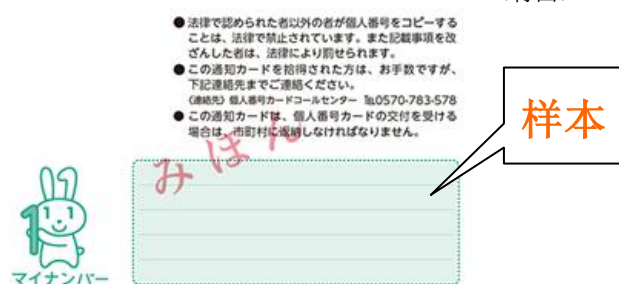 ●法律で認められた者以外の者が個人番号をコピーする
ことは、法律で禁止されています。また記載事項を改
ざんした者は、法律により罰せられます。
●この通知カードを拾得された方は、お手数ですが、
下記連絡先までご連絡ください。
(連絡先) 個人番号カードコールセンター ℡0570-783-578
●この通知カードは、個人番号カードの交付を受ける
場合は、市町村に返納しなければなりません。
样本
みほん
マイナンバー